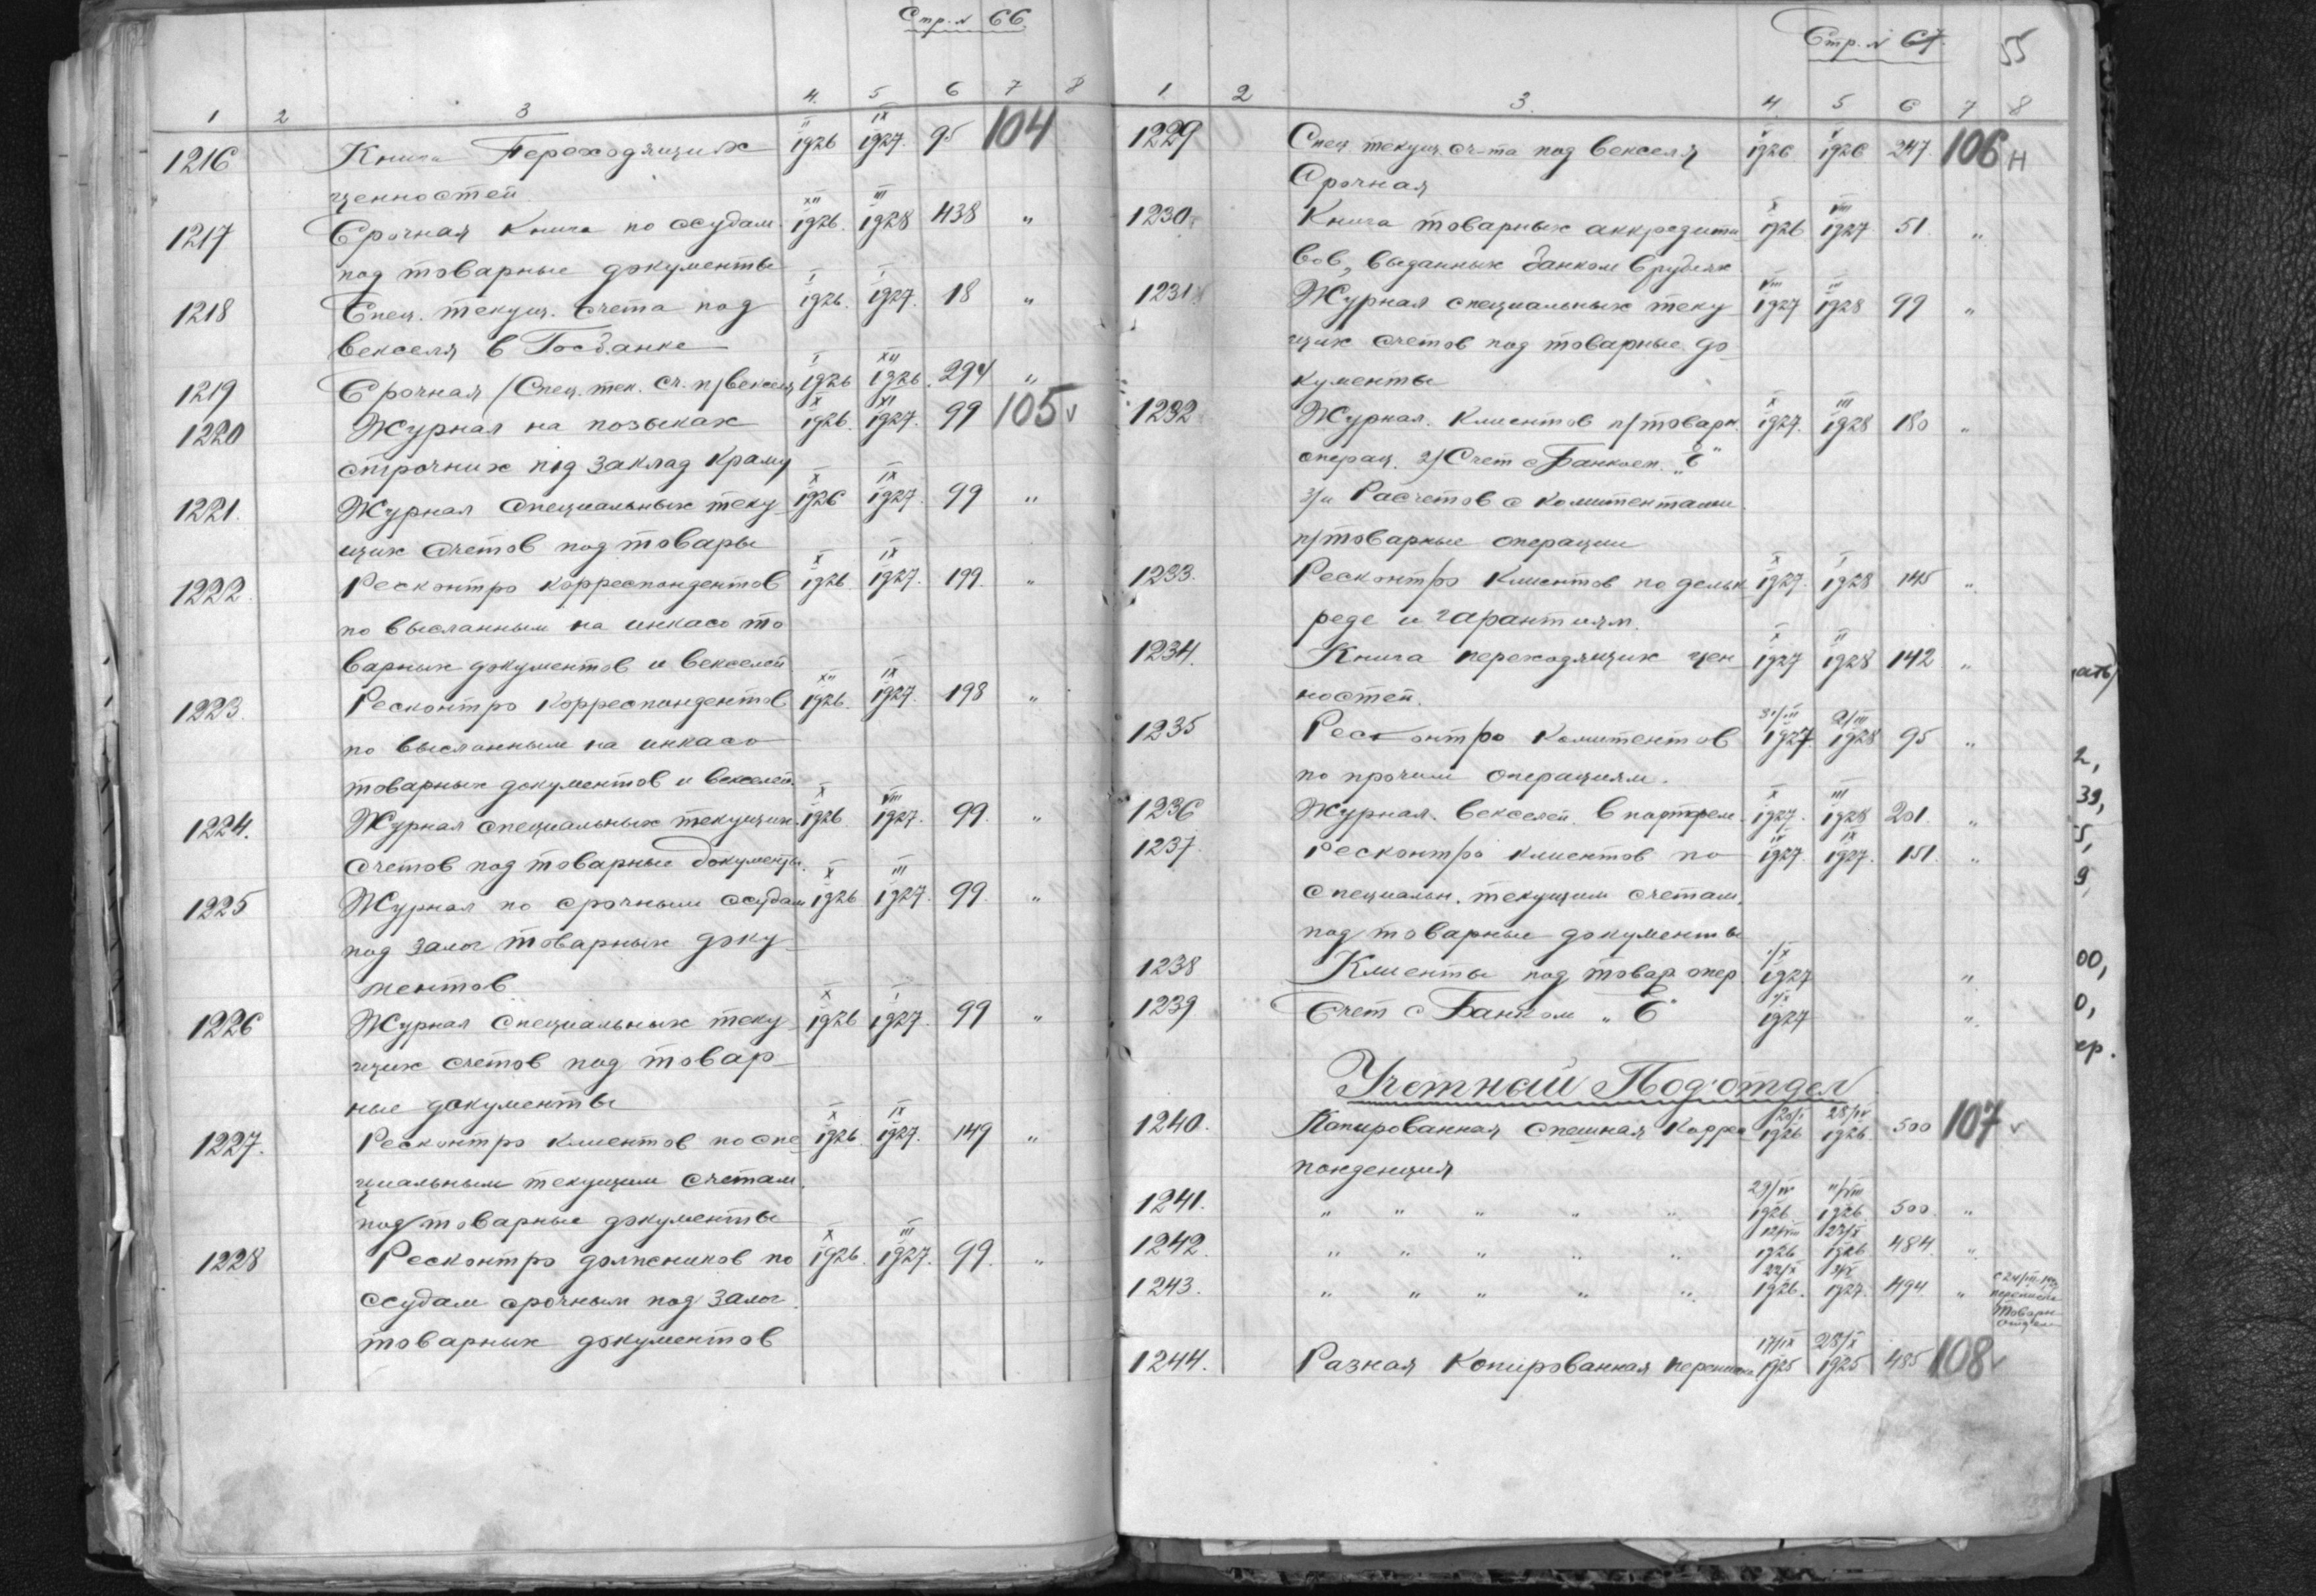 Стр. № 66
1 2 3 4. 5 6 7 8
1216 Книга Переходящих II 1926 IX 1927. 95 104
ценностей
1217 Срочная Книга по ссудам XII 1926. III 1928 438 "
под товарные документы
1218 Спец. текущ. счета под I 1926. I 1927. 18 "
векселя в Госбанке
1219 Срочная /Спец. тек. сч. п/векселя I 1926 XII 1926. 294 "
1220 Журнал на позыках X 1926. XI 1927. 99 105 v
строчних під заклад краму
1221. Журнал специальных теку X 1926 IX 1927. 99 "
щих счетов под товары
1222. Ресконтро корреспондентов X 1926. IX 1927. 199. "
по высланным на инкасо то
варных документов и векселей
1223. Ресконтро корреспондентов XII 1926. IX 1927. 198 "
по высланным на инкасо
товарных документов и векселей.
1224. Журнал специальных текущих X 1926. VIII 1927. 99. "
счетов под товарные документы.
1225 Журнал по срочным ссудам X 1926 III 1927. 99. "
под залог товарных доку
ментов
1226 Журнал Специальных теку X 1926 I 1927. 99 "
щих счетов под товар
ные документы
1227. Ресконтро клиентов по спе X 1926. IX 1927. 149 "
циальным текущим счетам.
под товарные документы
1228 Ресконтро должников по X 1926. III 1927. 99. "
ссудам срочным под залог
товарных документов
Стр. № 67. 55
1 2 3. 4. 5 6 7 8
1229 Спец. текущ. сч-та под векселя 1926. 1926 247. 106 Н
Срочная
1230. Книга товарных аккредити X 1926 VIII 1927. 51. "
вов, выданных банком в рублях
1231 Журнал специальных теку VIII 1927 III 1928 99 "
щих счетов под товарные до
кументы
1232 Журнал. Клиентов п/товарн. X 1927. III 1928 180 "
операц. 2/ Счет с Банком "Е"
3/и Расчетов с комитентами.
п/товарные операции
1233. Ресконтро Клиентов по дельк X 1927. I 1928 145 "
реде и гарантиям.
1234. Книга переходящих цен X 1927 II 1928 142 "
ностей.
1235 Ресконтро Комитентов 1927 2/III 1928 95 "
по прочим операциям.
1236 Журнал. векселей. в портфеле X 1927. III 1928 201. "
1237. Ресконтро клиентов по IV 1927. IX 1927. 151. "
специальн. текущим счетам.
под товарные документы
1238 Клиенты под товар. опер 1/X 1927 "
1239 Счет с Банком "Е" 1/X 1927 "
Учетный Под'отдел
1240. Копированная спешная Коррес 1926 28/IV 1926. 500 107 v
понденция
1241. " " " " " 29/IV 1926 11/VIII 1926. 500. "
1242. " " " " " 12/VIII 1926 1926 484. "
1243. " " " " " 1926. 1927. 494. "
переписка
Товарн
отдел
1244. Разная Копированная переписка 17/IX 1925 28/X 1925 485 108 v
ать)
2,
39,
5,
9,
00,
0,
ер.